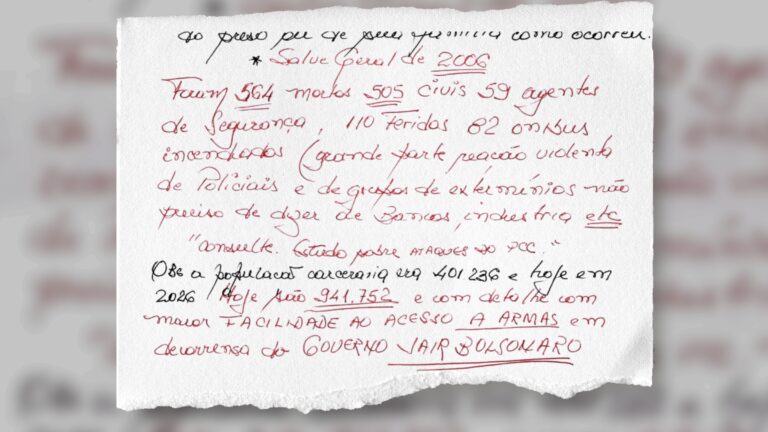 do preso ou de sua família como ocorreu.
* Salve Geral de 2006
Foram 564 mortos 505 civis 59 agentes
de Segurança, 110 feridos 82 onibus
incendiados (grande parte reação violenta
de Policiais e de grupos de extermínios não
preciso de dizer de Bancos, industria etc
"consulte. Estudo sobre ATAQUES DO PCC."
Obs a população carceraria era 401 236 e hoje em
2026 Hoje são 941.752 e com detalhe com
maior FACILIDADE AO ACESSO A ARMAS em
decorrensa do GOVERNO JAIR BOLSONARO